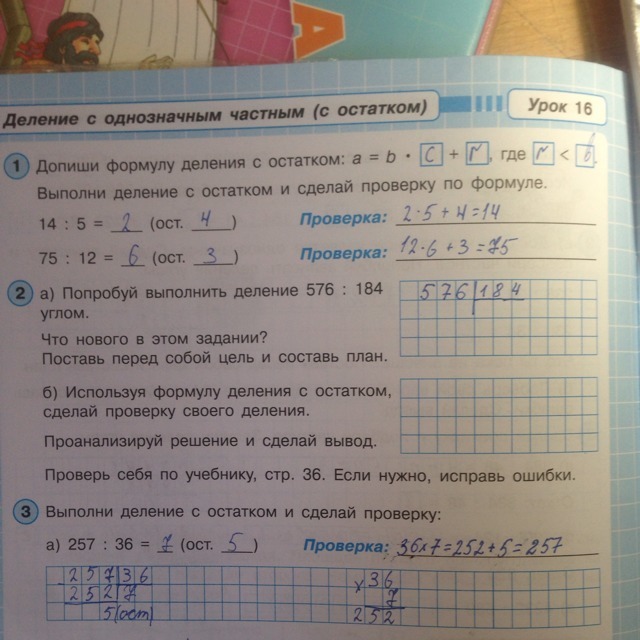 А
Деление с однозначным частным (с остатком) Урок 16
1 Допиши формулу деления с остатком: a = b · c + r, где r < b.
Выполни деление с остатком и сделай проверку по формуле.
14 : 5 = 2 (ост. 4) Проверка: 2·5+4=14
75 : 12 = 6 (ост. 3) Проверка: 12·6+3=75
2 а) Попробуй выполнить деление 576 : 184 576|184
углом.
Что нового в этом задании?
Поставь перед собой цель и составь план.
б) Используя формулу деления с остатком,
сделай проверку своего деления.
Проанализируй решение и сделай вывод.
Проверь себя по учебнику, стр. 36. Если нужно, исправь ошибки.
3 Выполни деление с остатком и сделай проверку:
а) 257 : 36 = 7 (ост. 5) Проверка: 36×7=252+5=257
-257|36 ×36
252|7 7
5(ост) 252